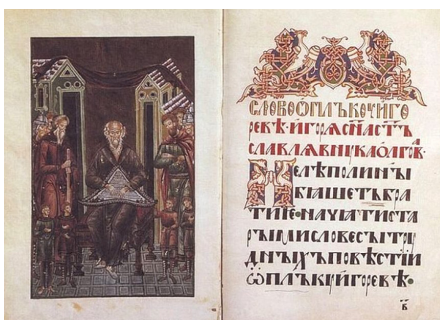 СЛОВО Ѡ ПЛЪКѸ ИГО
РЕВѢ · ИГОРѦ СЫНА СТЪ
СЛАВЛѦ ВНУКА ОЛГОВА
НЕ ЛѢПО ЛИ НЫ
БѦШЕТЬ БРА
ТИЕ · НАЧѦТИ СТА
РЫМИ СЛОВЕСЫ ТРꙊ
ДНЫХЪ ПОВѢСТИИ
Ѡ ПЛЪКꙊ ИГОРЕВѢ ·